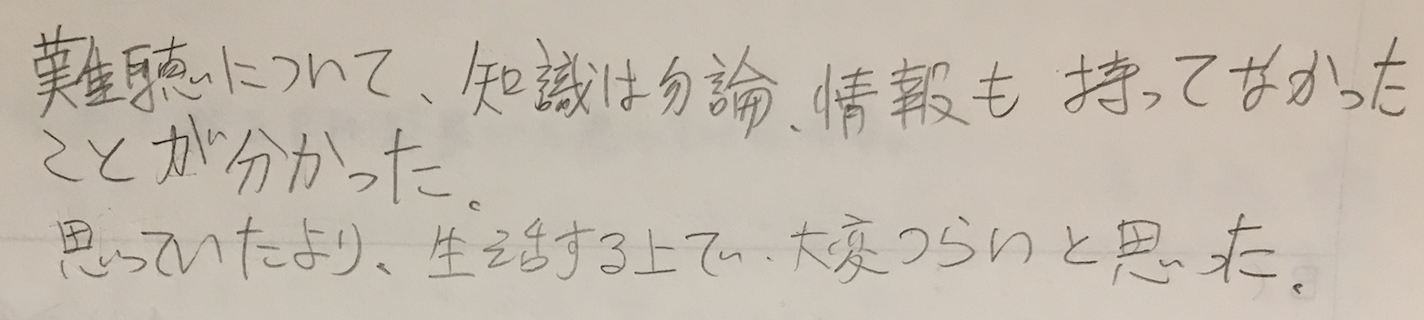 難聴について、知識は勿論、情報も持ってなかった
ことが分かった。
思っていたより、生活する上で、大変つらいと思った。